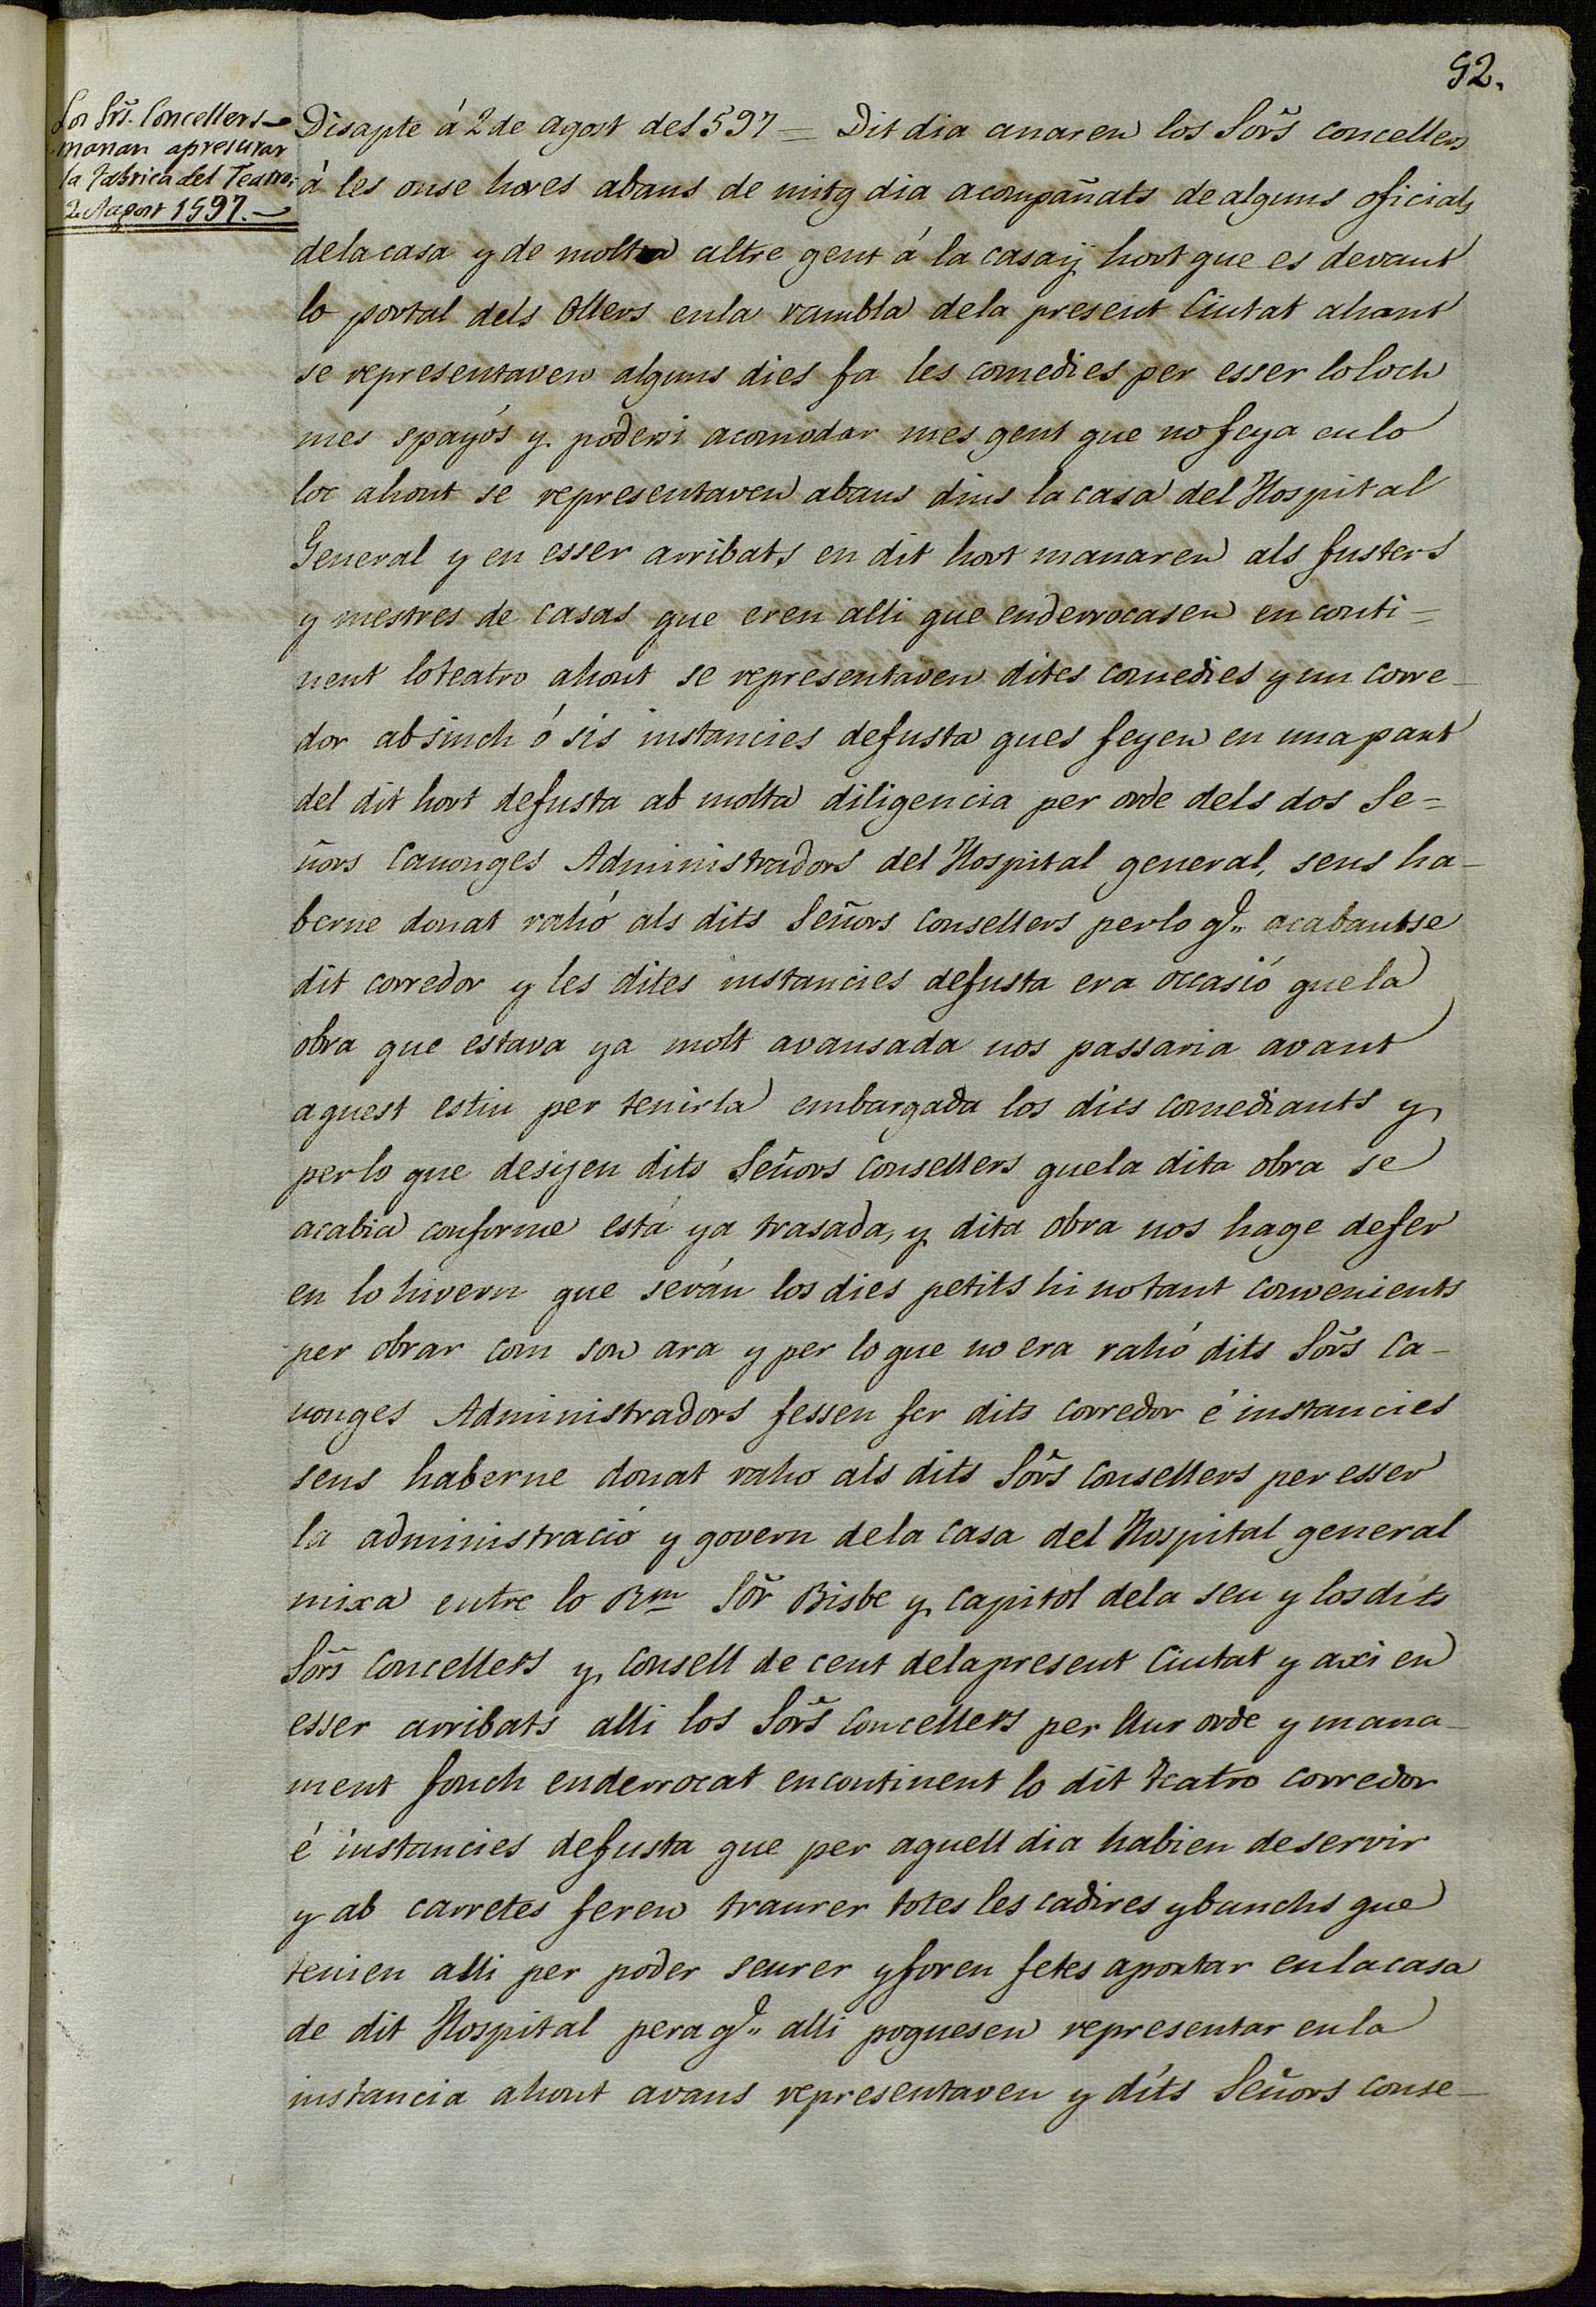 92.
Los Srs. Concellers
manan apresurar
la Fabrica del Teatro.
2. Agost 1597.
Disapte á 2 de agost del 597 = Dit dia anaren los Sors concellers
á les onse hores abans de mitg dia acompañats de alguns oficials
dela casa y de molta altre gent á la casa y hort que es devant
lo portal dels Ollers enla rambla dela present Ciutat ahont
se representaven alguns dies fa les comedies per esser lo loch
mes spayós y podersi acomodar mes gent que no feya enlo
loc ahont se representaven abans dins la casa del Hospital
General y en esser arribats en dit hort manaren als fusters
y mestres de casas que eren alli que enderrocasen en conti=
nent lo teatro ahont se representaven dites comedies y un corre_
dor ab sinch ó sis instancies de fusta ques feyen en una part
del dit hort de fusta ab molta diligencia per orde dels dos Se=
ñors Canonges Administradors del Hospital general, sens ha_
berne donat rahó als dits Señors Consellers perlo q.e acabantse
dit corredor y les dites instancies defusta era occasió quela
obra que estava ya molt avansada nos passaria avant
aquest estiu per tenirla embargada los dits comediants y
perlo que desijen dits Señors Consellers quela dita obra se
acabia conforme está ya trasada, y dita obra nos hage defer
en lo hivern que serán los dies petits hi no tant convenients
per obrar com son ara y per lo que no era rahó dits Sors Ca_
nonges Administradors fessen fer dits corredor é instancies
sens haberne donat raho als dits Sors Consellers per esser
la administració y govern dela casa del Hospital general
mixa entre lo Rm Sor Bisbe y capitol dela seu y los dits
Sors Concellers y Consell de cent dela present Ciutat y axi en
esser arribats alli los Sors Concellers per llur orde y mana_
ment fonch enderrocat encontinent lo dit teatro corredor
é instancies defusta que per aquell dia habien de servir
y ab carretes feren traurer totes les cadires y banchs que
tenien alli per poder seurer y foren fetes aportar enla casa
de dit Hospital pera q.e alli poguesen representar enla
instancia ahont avans representaven y dits Señors Conse_